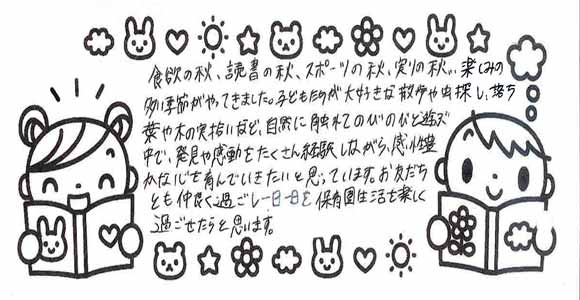 食欲の秋、読書の秋、スポーツの秋、実りの秋...楽しみの
多い季節がやってきました。子どもたちが大好きな散歩や虫探し、落ち
葉や木の実拾いなど、自然に触れてのびのびと遊ぶ
中で、発見や感動をたくさん経験しながら、感性豊
かな心を育んでいきたいと思っています。お友だち
とも仲良く過ごし一日一日を保育園生活を楽しく
過ごせたらと思います。